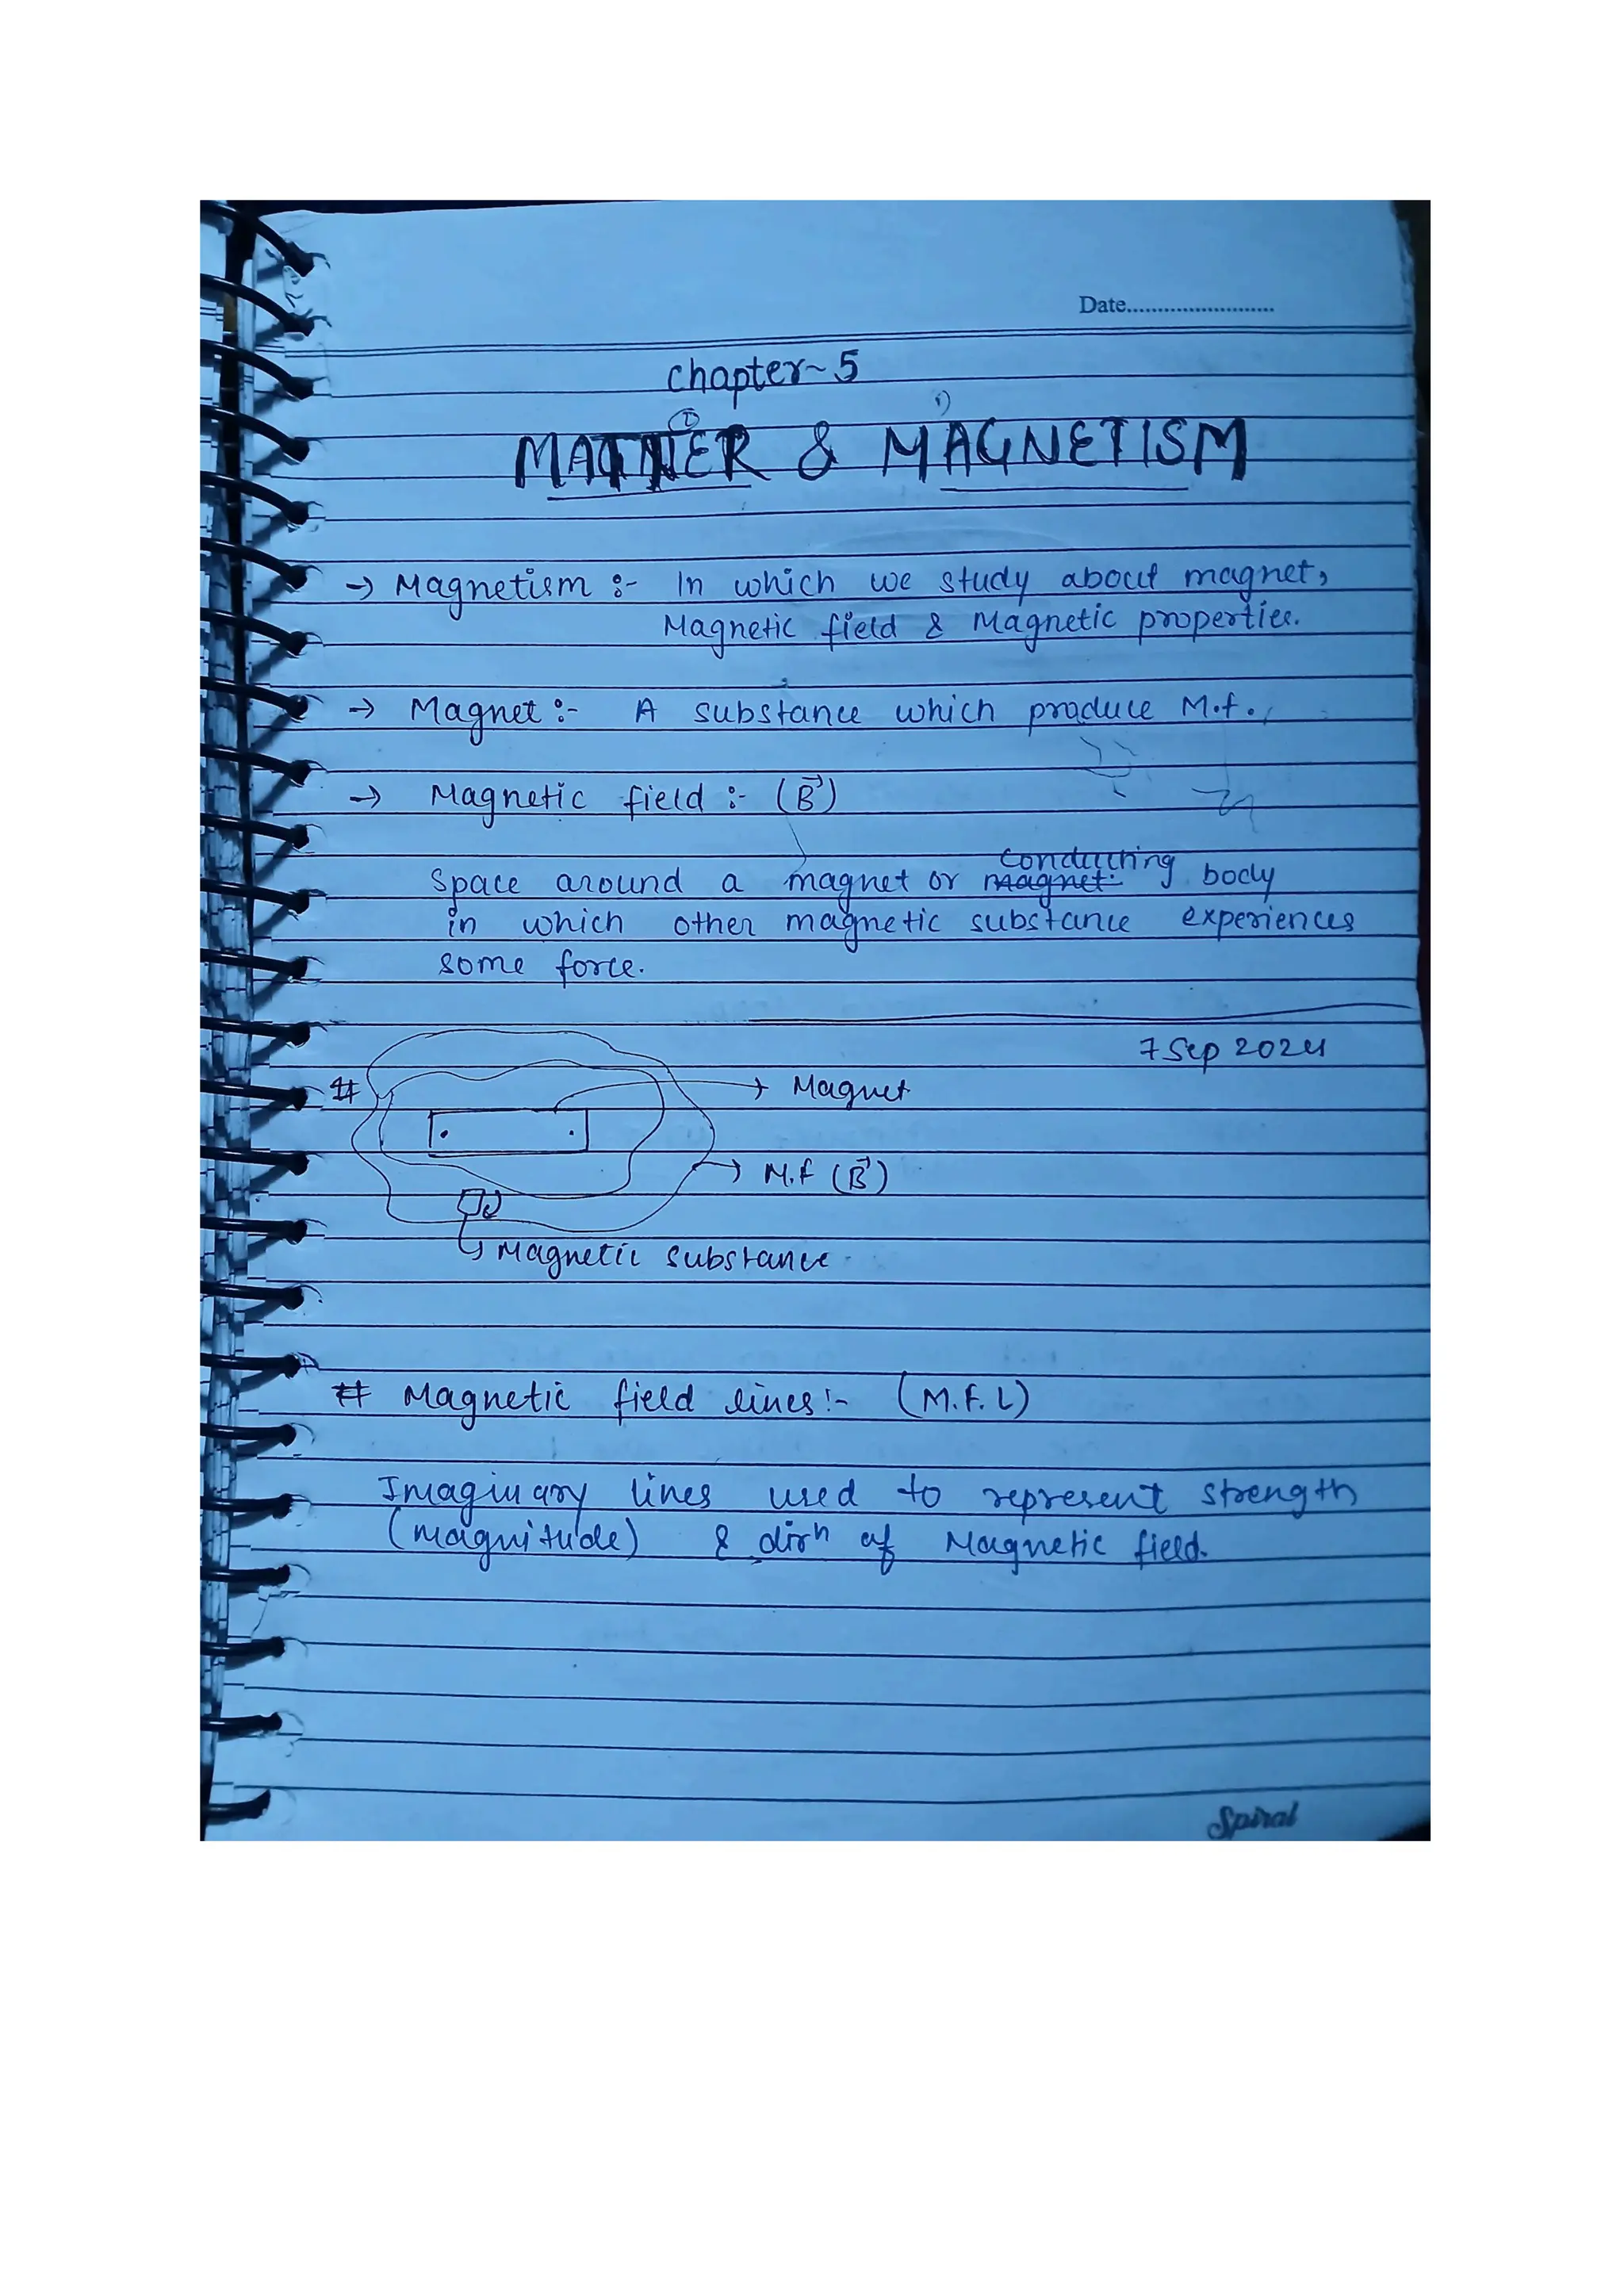 Date........................
Chapter~5
② i)
MATTER & MAGNETISM
→ Magnetism :- In which we study about magnet,
Magnetic field & Magnetic properties.
→ Magnet :- A substance which produce M.f.
→ Magnetic field :- (B⃗)
conducting
Space around a magnet or magnet body
in which other magnetic substance experiences
some force.
7 Sep 2024
# → Magnet
→ M.f (B⃗)
↳ Magnetic substance
# Magnetic field lines:- (M.F.L)
Imaginary lines used to represent strength
(magnitude) & dirⁿ of Magnetic field.
Spiral